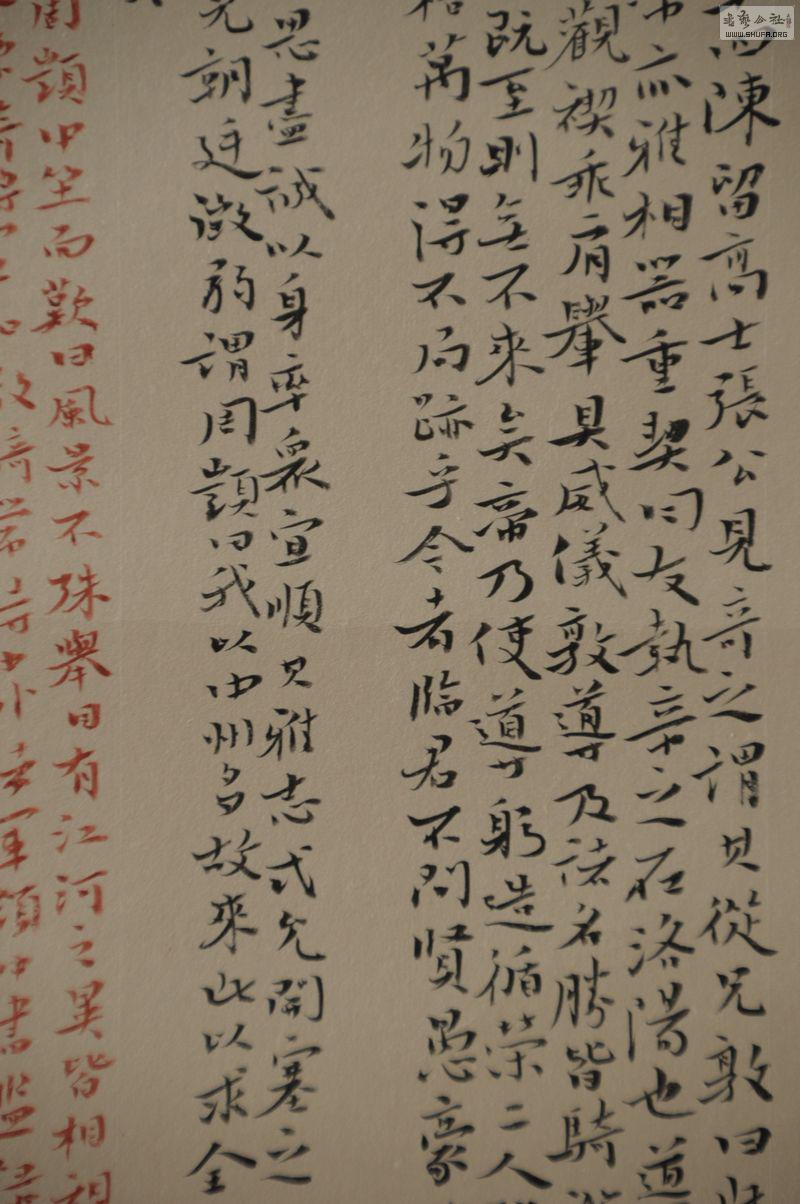 陳留高士張公見奇之謂其從兄敦曰
亦雅相器重契同友執帝之在洛陽也道
觀禊乘肩轝具威儀敦導及諸名勝皆騎
既至則無不來矣帝乃使導躬造循榮二人
萬物得不局跡乎今者臨君不問賢愚豪
思盡誠以身率眾宣順其雅志式允開塞之
朝廷微弱謂周顗曰我以中州多故來此以求全
周顗中坐而歎曰風景不殊舉目有江河之異皆相視
書藝公社
WWW.SHUFA.ORG